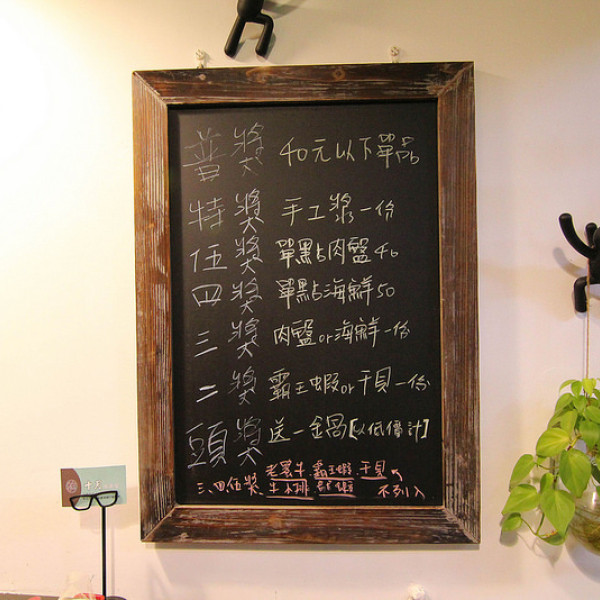 普獎 40元以下單品
特獎 手工漿一份
伍獎 單點肉盤40
四獎 單點海鮮50
三獎 肉盤or海鮮一份
二獎 霸王蝦or干貝一份
頭獎 送一鍋[以低價計]
老饕牛 霸王蝦 干貝
三、四、伍獎 牛小排 不列入